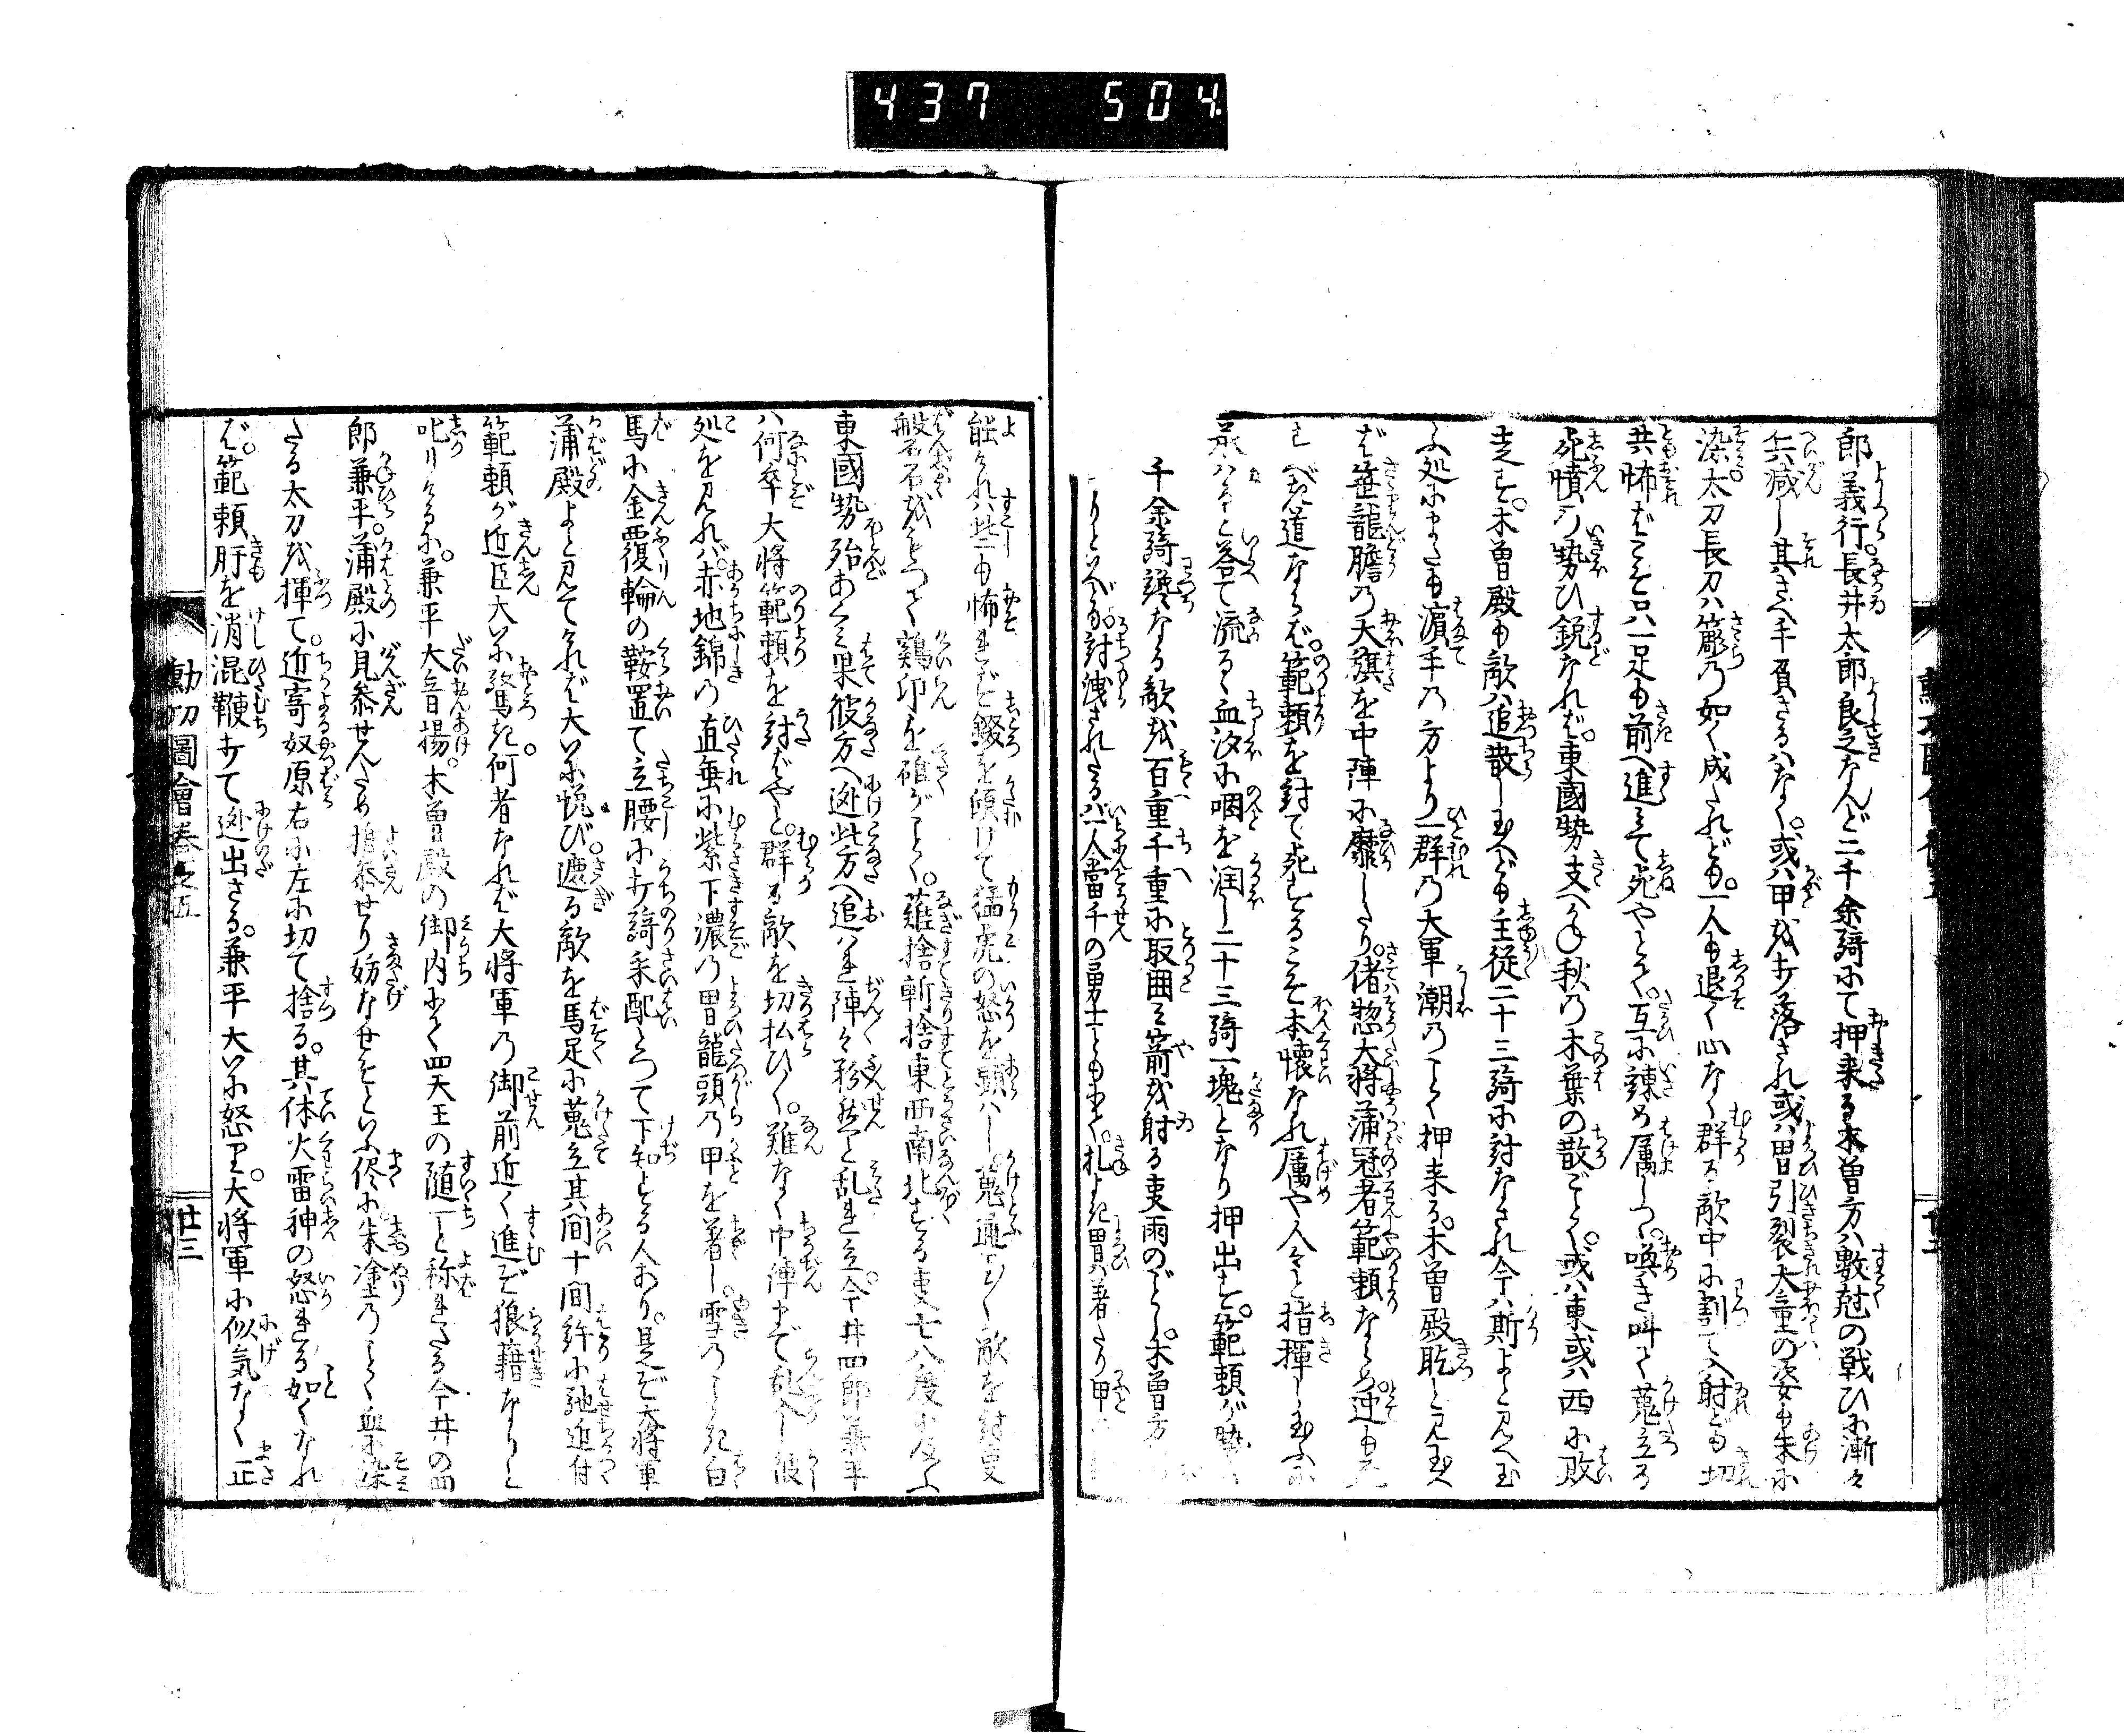 437 504
郎義行。長井太郎良之なんど二千余騎にて押来る木曽方ハ數尅の戦ひに漸々
兵減し其さへ手負ざるハなく。或ハ甲を打落され或ハ冑引裂大童の姿も朱に
染太刀長刀ハ簓の如く成たれども。一人も退く心なく群る敵中に割て入射ども切
共怖ばこそ只一足も前へ進みて死やとく。互に諌め厲しつ。喚き叫て蒐立る
死憤の勢ひ鋭なれバ。東國勢支へかね秋の木葉の散ごとく。或ハ東或ハ西に敗
走を。木曽殿も敵ハ追散し玉へども主従二十三騎に討なされ今ハ斯よと見へ玉
ふ処にまたも濵手の方より一群の大軍潮のごとく押来る。木曽殿屹と見玉へ
ば笹龍膽の大旗を中陣に靡したり。偖ハ惣大将蒲冠者範頼ならめ。迚も
すべき道ならバ。範頼を討て死するこそ本懐なれ厲や人々と指揮し玉ふに
承ハると答て流るゝ血汐に咽を潤し二十三騎一塊となり押出を。範頼が勢
千余騎雄なる敵を百重千重に取囲み箭を射る叓雨のごとし。木曽方
りといへる。討洩されたるハ一人當千の勇士ともなく。札よき冑ハ著たり甲
能けれバ些も怖れず錣を傾けて猛虎の怒を顕ハし。蒐通りつゝ敵を討叓
般石をもつて鶏卵を碓がごとく。薙捨斬捨東西南北する叓七八度に及ふ
東國勢殆あぐみ果彼方へ迯此方へ追ハれ陣々粉然と乱れ立。今井四郎兼平
ハ何卒大将範頼を討ばやと。群る敵を切払ひく。難なく中陣まで乱入し彼
処を見れバ。赤地錦の直垂に紫下濃の冑龍頭の甲を著し。雪のごとき白
馬に金覆輪の鞍置て立腰に打騎采配とつて下知する人あり。是ぞ大将軍
蒲殿よと見てけれバ大いに悦び。遮る敵を馬足に蒐立其間十間許に馳近付
範頼が近臣大いに驚き。何者なれバ大将軍の御前近く進ぞ狼藉なりと
叱りけるに。兼平大音揚。木曽殿の御内にて四天王の随一と称れたる今井の四
郎兼平。蒲殿に見参せんため推参せり妨なせそといふ侭に朱塗のごとく血に染
たる太刀を揮て。近寄奴原右に左に切て捨る。其体火雷神の怒れる如くなれ
バ。範頼肝を消混鞭打て迯出さる。兼平大いに怒り。大将軍に似気なく正
勳功圖會巻之五
廿三